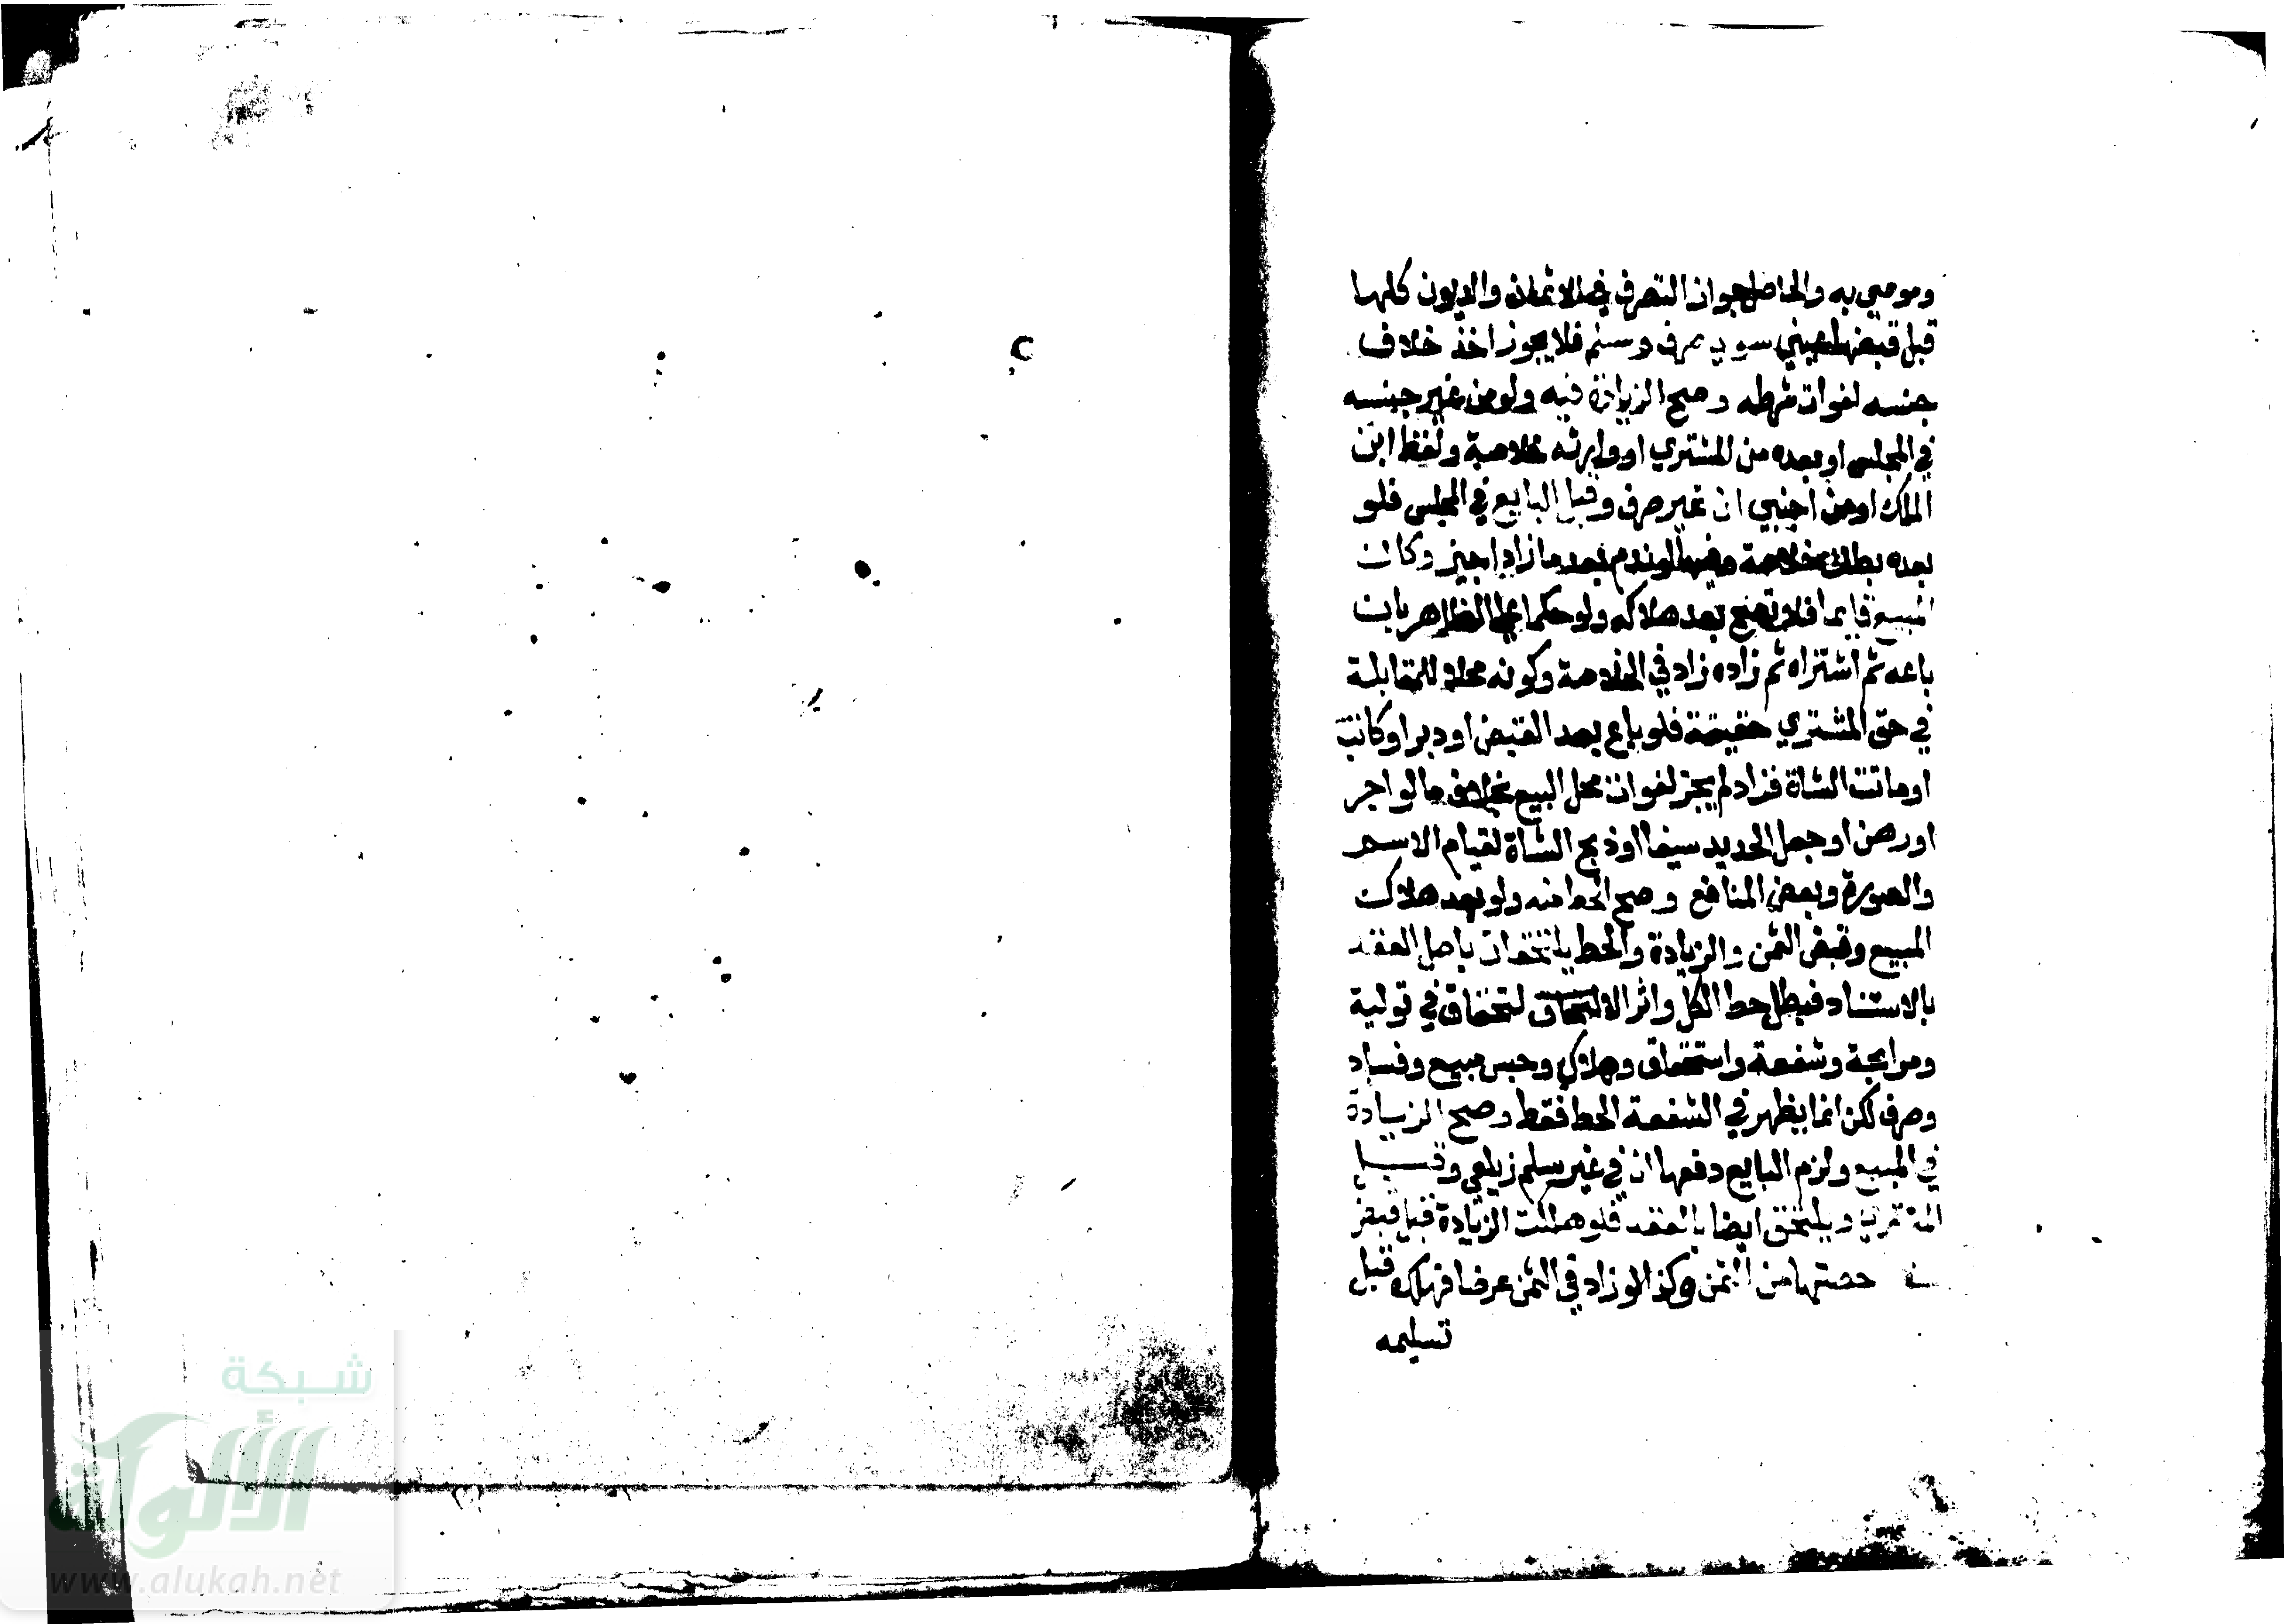 وموصي به والحاصل جواز التصرف في الاثمان والديون كلها
قبل قبضها عيني سوي صرف وسلم فلا يجوز اخذ خلاف
جنسه لفوات شرطه وصح الزيادة فيه ولو من غير جنسه
في المجلس او بعده من المشتري او وارثه خلاصة ولفظ ابن
الملك او من اجنبي ان غير صرف وقبل البايع في المجلس فلو
بعده بطلت خلاصة وفيها لو ندم بعد ما زاد اجبر وكان
المبيع قايما فلا تصح بعد هلاكه ولو حكما علي الظاهر بان
باعه ثم اشتراه ثم زاده زاد في الخلاصة وكونه محلا للمقابلة
في حق المشتري حقيقة فلو باع بعد القبض او دبر او كاتب
او ماتت الشاة فزاد لم يجز لفوات محل البيع بخلاف ما لو اجر
او رهن او جعل الحديد سيفا او ذبح الشاة لقيام الاسم
والصورة وبعض المنافع وصح الحط منه ولو بعد هلاك
المبيع وقبض الثمن والزيادة والحط يلتحقان باصل العقد
بالاستناد فبطل حط الكل واثر الالتحاق لتحقاق في تولية
ومرابحة وشفعة واستحقاق وهلاك وحبس مبيع وفساد
وصرف لكن انما يظهر في الشفعة الحط فقط وصح الزيادة
في المبيع ولزم البايع دفعها ان في غير سلم زيلعي وقبل
المشتري ويلتحق ايضا بالعقد فلو هلكت الزيادة قبل قبض
حصتها من الثمن وكذا لو زاد في الثمن عرضا فهلك قبل
تسليمه
شبكة
الألوكة
www.alukah.net